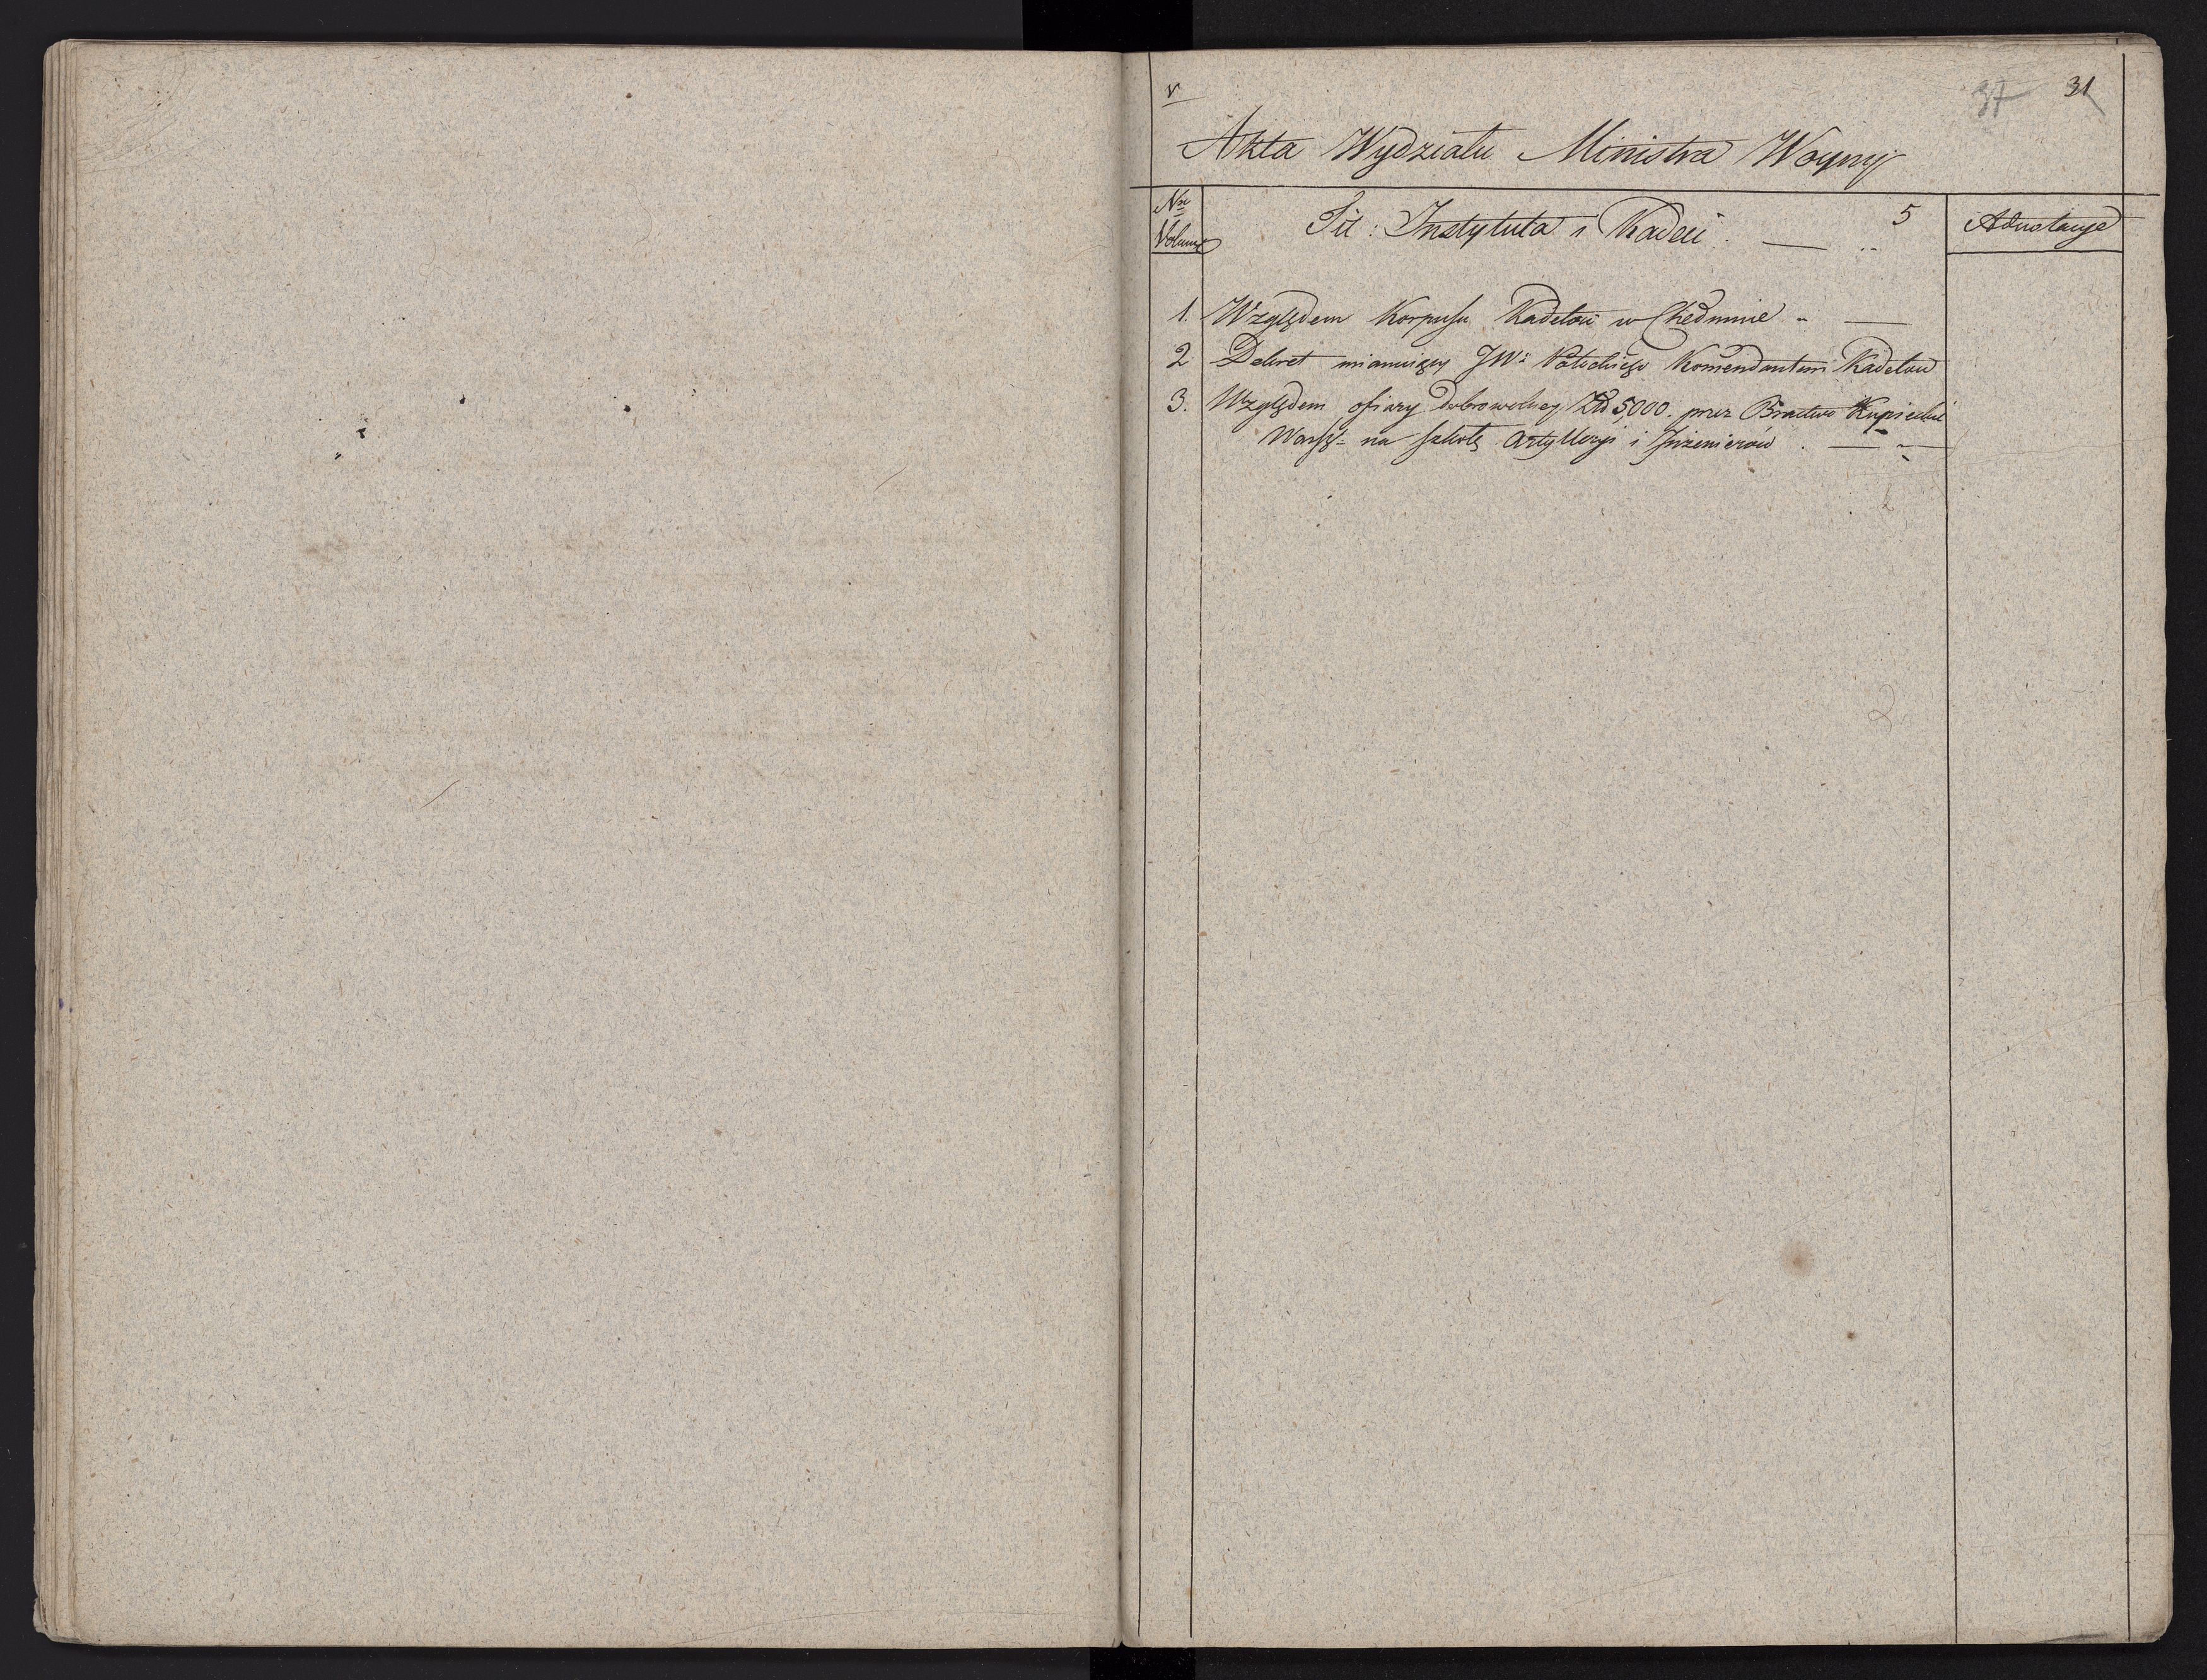 V
37 31
Akta Wydziału Ministra Woyny
Nr Volum
Tit: Instytuta i Kadeci. — 5
Adnotacye
1. Względem Korpusu Kadetów w Chełmnie -
2 Dekret mianuiący JWo Potockiego Komendantem Kadetów
3. Względem ofiary dobrowolney Zł 5,000. przez Bractwo Kupieckie
Warsz- na szkołę Artylleryi i Inżenierów . —
2